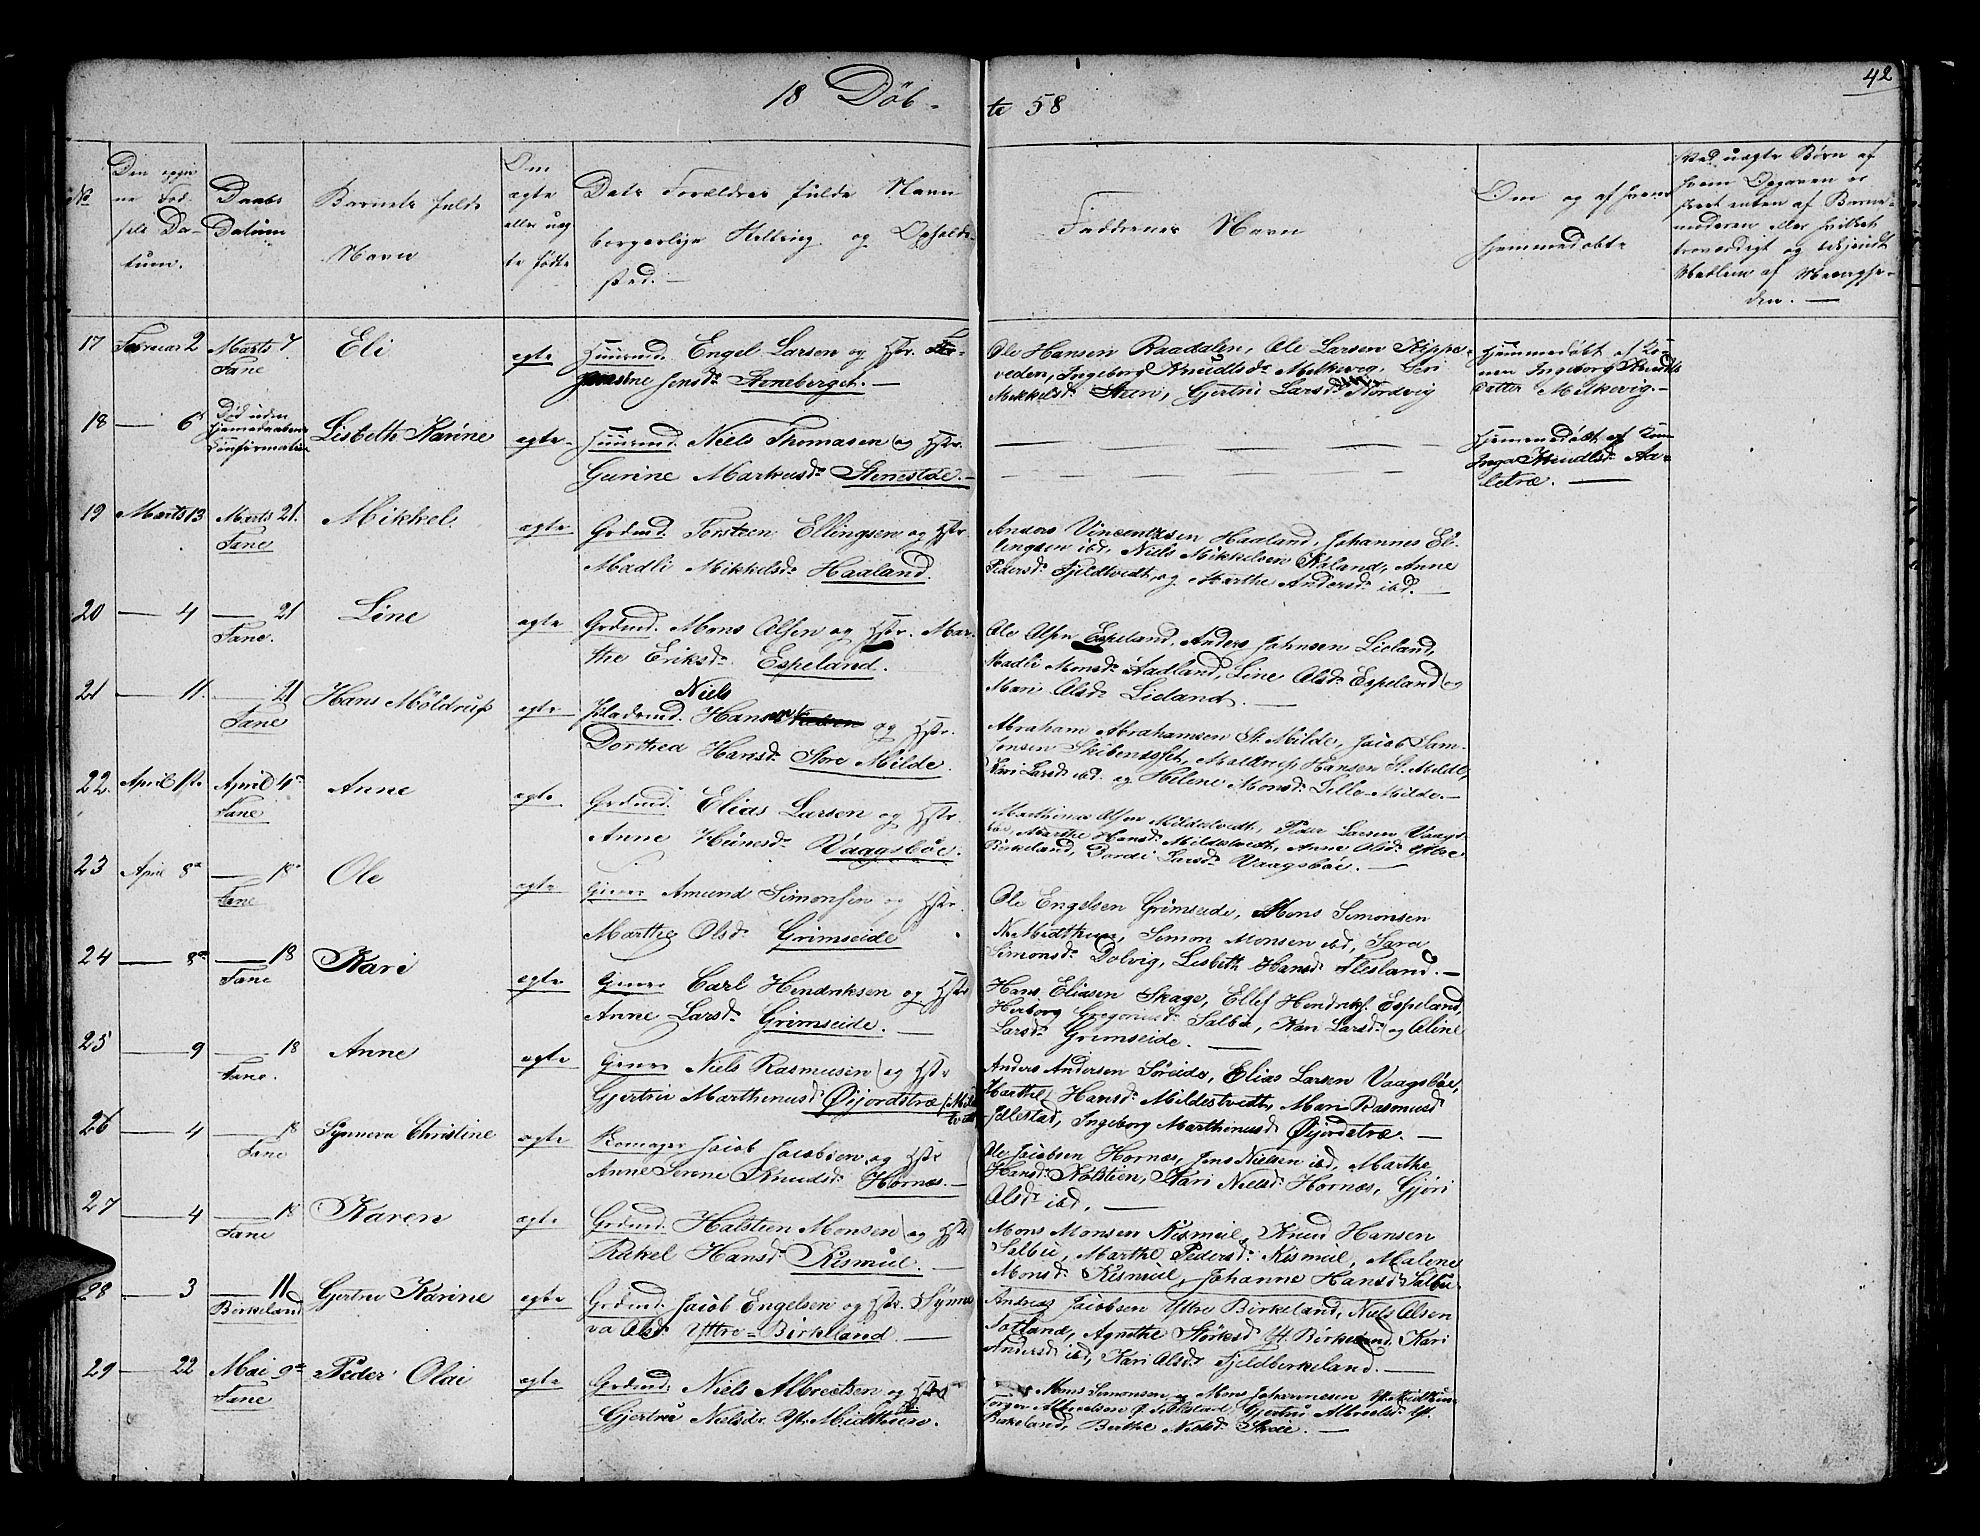 42
18 Døb- te 58
No
Den opgivne Fødsels Datum.
Daabs Datum
Barnets fulde Navn
Om ægte eller uægte fødte
Dets Forældres fulde Navn borgerlige Stilling og Opholdssted. —
Faddernes Navn
Om og af hvem hjemmedøbt
Ved uægte Børn af hvem Opgaven er skeet enten af Barnemoderen eller hvilket troværdigt og bekjendt Medlem af Menigheden. —
17 Februar 2 Marts 7 Fane
Eli
ægte
Huusmd. Engel Larsen og Hstr.
Jensd. Stoneberget. —
Ole Hansen Raadalen, Ole Larsen Kippe-
veden, Ingeborg Knudsd. Melkevig, Seri
Mikkelsd. Steen, Gjertru Larsd. Nordvig
Hjemmedøbt af Ko-
nen Ingeborg Knuds
datter Melkevig. —
18 — 6 Død uden Hjemedaabens Confirmation
Lisbeth Karine
ægte
Huusmd. Niels Thomasen og Hstr.
Gurine Markusd. Stenestøe. —
Hjemmedøbt af Kon
Inga Knudsd. Aa-
letræ. —
19 Marts 13 Marts 21. Fane
Mikkel
ægte
Grdmd. Torsteen Ellingsen og Hstr.
Madli Mikkelsd. Haaland.
Anders Vincentsen Haaland, Johannes El-
lingsen ibd, Niels Mikkelsen Røland, Anne
Pedersd. Fjeldtvedt, og Marthe Andersd. ibd. —
20 — 4 — 21 Fane.
Line
ægte
Grdmd. Mons Olsen og Hstr. Mar-
the Eriksd. Espeland.
Ole Olsen Espeland, Anders Johnsen Lieland,
Madli Monsd. Aadland, Line Olsd. Espeland og
Mari Olsd. Lieland. —
21 — 11. — 21 Fane
Hans Møldrup
ægte
Niels
Pladsmd. Hansen og Hstr.
Dorthea Hansd. Store Milde.
Abraham Abrahamsen St. Milde, Jacob Sam-
sonsen Skibenæsset, Møldrup Hansen St. Milde,
Kari Larsd. ibd. og Helene Monsd. Lille-Milde. —
22. April 1ste April 4de Fane
Anne
ægte
Grdmd. Elias Larsen og Hstr.
Anne Hansd. Vaagsbøe.
Marthinus Olsen Mildestvedt, Peder Larsen Vaags-
bøe, Marthe Hansd. Mildestvedt, Anne Olsd. Yttre
Birkeland, Dordi Larsd. Vaagsbøe. —
23 April 8de — 18de Fane
Ole
ægte
Gjører Amund Simonsen og Hstr.
Marthe Olsd. Grimseide
Ole Engelsen Grimseide, Mons Simonsen
N. Midthun, Simon Monsen ibd, Sara
Simonsd. Dolvig, Lisbeth Hansd. Flesland. —
24 — 8de — 18 Fane
Kari
ægte
Gjører Carl Hendriksen og Hstr
Anne Larsd. Grimseide. —
Hans Eliasen Skage, Ellef Hendriks. Espeland,
Herborg Gregoriusd. Salbu, Kari Larsd. og Oline
Larsd. Grimseide. —
25 — 9 — 18 Fane.
Anne
ægte
Gjører Niels Rasmusen og Hstr
Gjertru Marthinusd. Øijordstræ
Anders Andersen Søreide, Elias Larsen Vaagsbøe,
Marthe Hansd. Mildestvedt, Mari Rasmusd.
Jællestad, Ingeborg Marthinusd. Øijordstræ. —
26 — 4 — 18 Fane
Synneva Christine
ægte
Skomager Jacob Jacobsen og Hstr
Anne Serene Knudsd. Hornæs. —
Ole Jacobsen Hornæs, Jens Nielsen ibd, Marthe
Hansd. Kolstien, Kari Nielsd. Hornæs, Gjøri
Olsd. ibd. —
27 — 4 — 18 Fane
Karen
ægte
Grdmd. Halsten Monsen og Hstr
Rakel Hansd. Kismul. —
Mons Monsen Kismul, Knud Hansen
Salbu, Marthe Pedersd. Kismul, Malene
Monsd. Kismul, Johanne Hansd. Salbu
28 — 3 — 11 Birkeland
Gjertru Karine
ægte
Grdmd. Jacob Engelsen og Hstr. Synne
va Olsd. Yttre-Birkeland. —
Andreas Jacobsen Yttre Birkeland, Niels Olsen
Totland, Agnethe Størksd. Yt. Birkeland, Kari
Andersd. ibd, Kari Olsd. Fjeldbirkeland. —
29 — 22 Mai 9de Fane
Peder Olai
ægte
Grdmd. Niels Albrectsen og Hstr
Gjertru Nielsdr. Yt. Midthun.
Mons Simonsen og Mons Johannesen Yt. Midthun
Gjertru Albrectsd. Yt.
Birkeland, Berthe Nielsd. Skeie. —